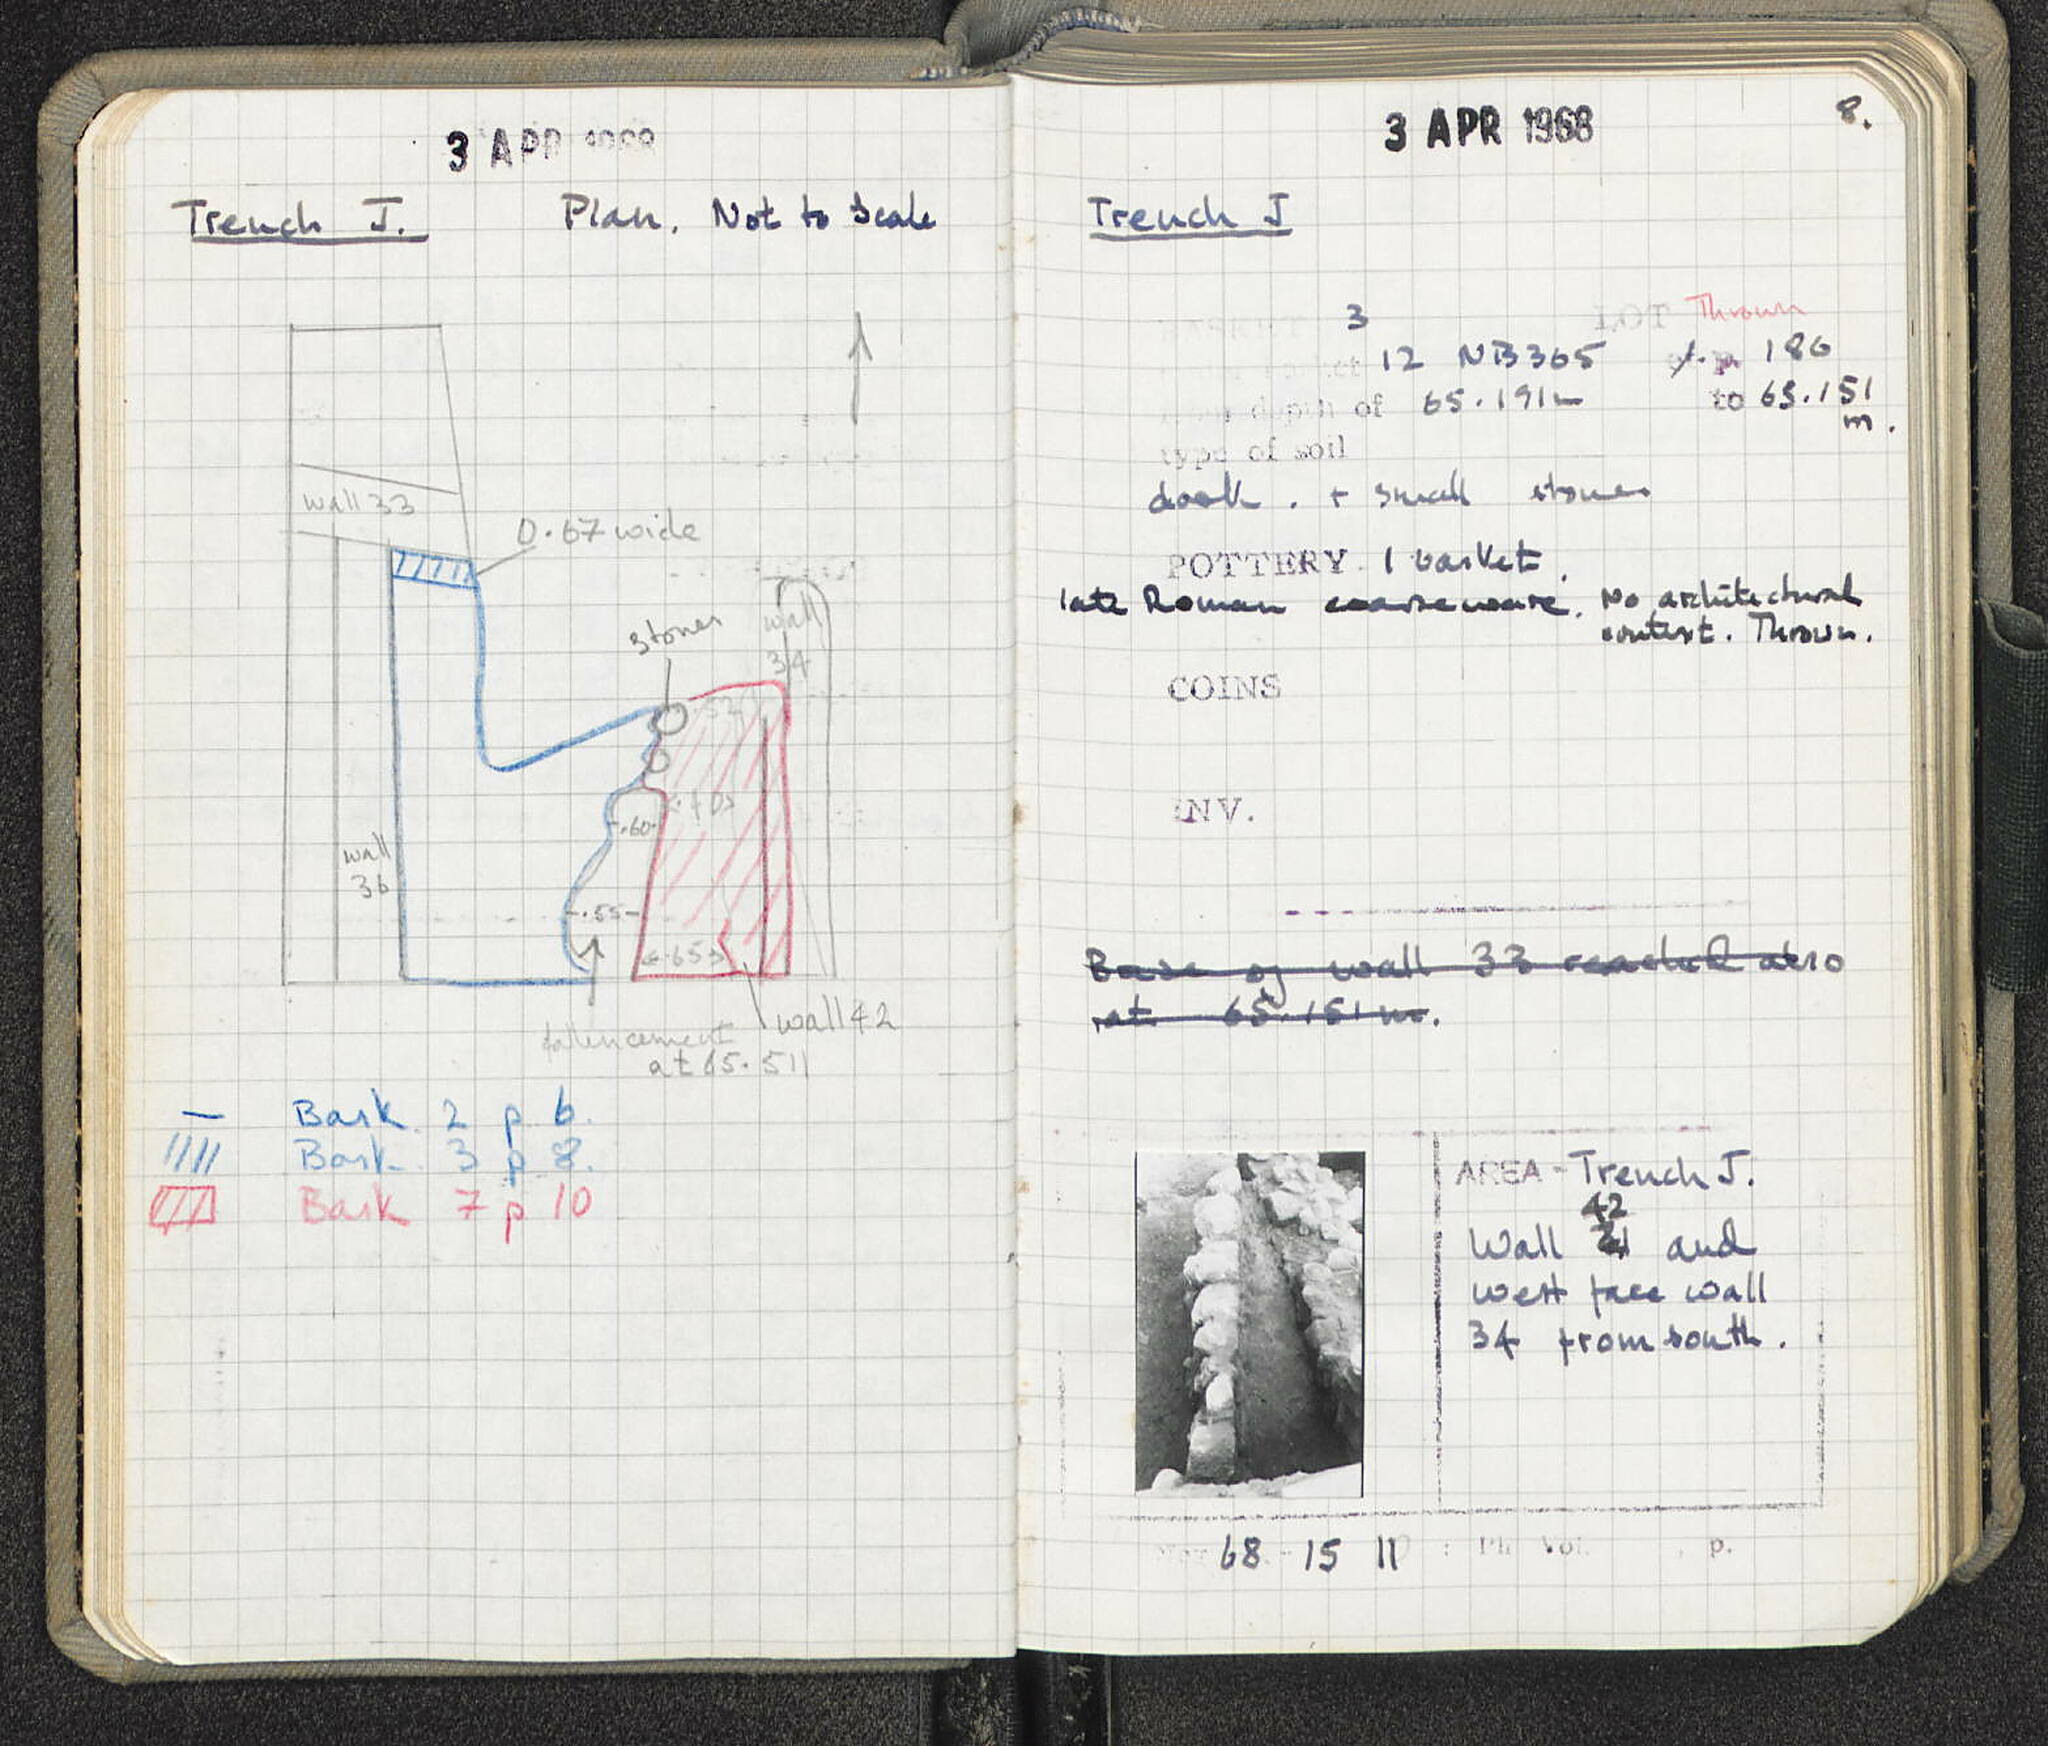 3 APR 1968
Trench J. Plan. Not to Scale
wall 33
0.67 wide
stones
wall
34
.60
wall
36
.55
.65
wall 42
at 65.511
Bask. 2 p 6.
Bask. 3 p 8.
Bask 7 p 10
3 APR 1968
8.
Trench J
BASKET 3 LOT Thrown
12 NB365 p 180
depth of 65.191m to 65.151
m.
type of soil
dark. + small stones
POTTERY 1 basket.
late Roman coarseware. No architectural
context. Thrown.
COINS
INV.
Base of wall 33 reached also
at 65.151 m.
AREA - Trench J.
42
Wall and
west face wall
34 from south.
68 - 15 11 : Ph Vol. p.